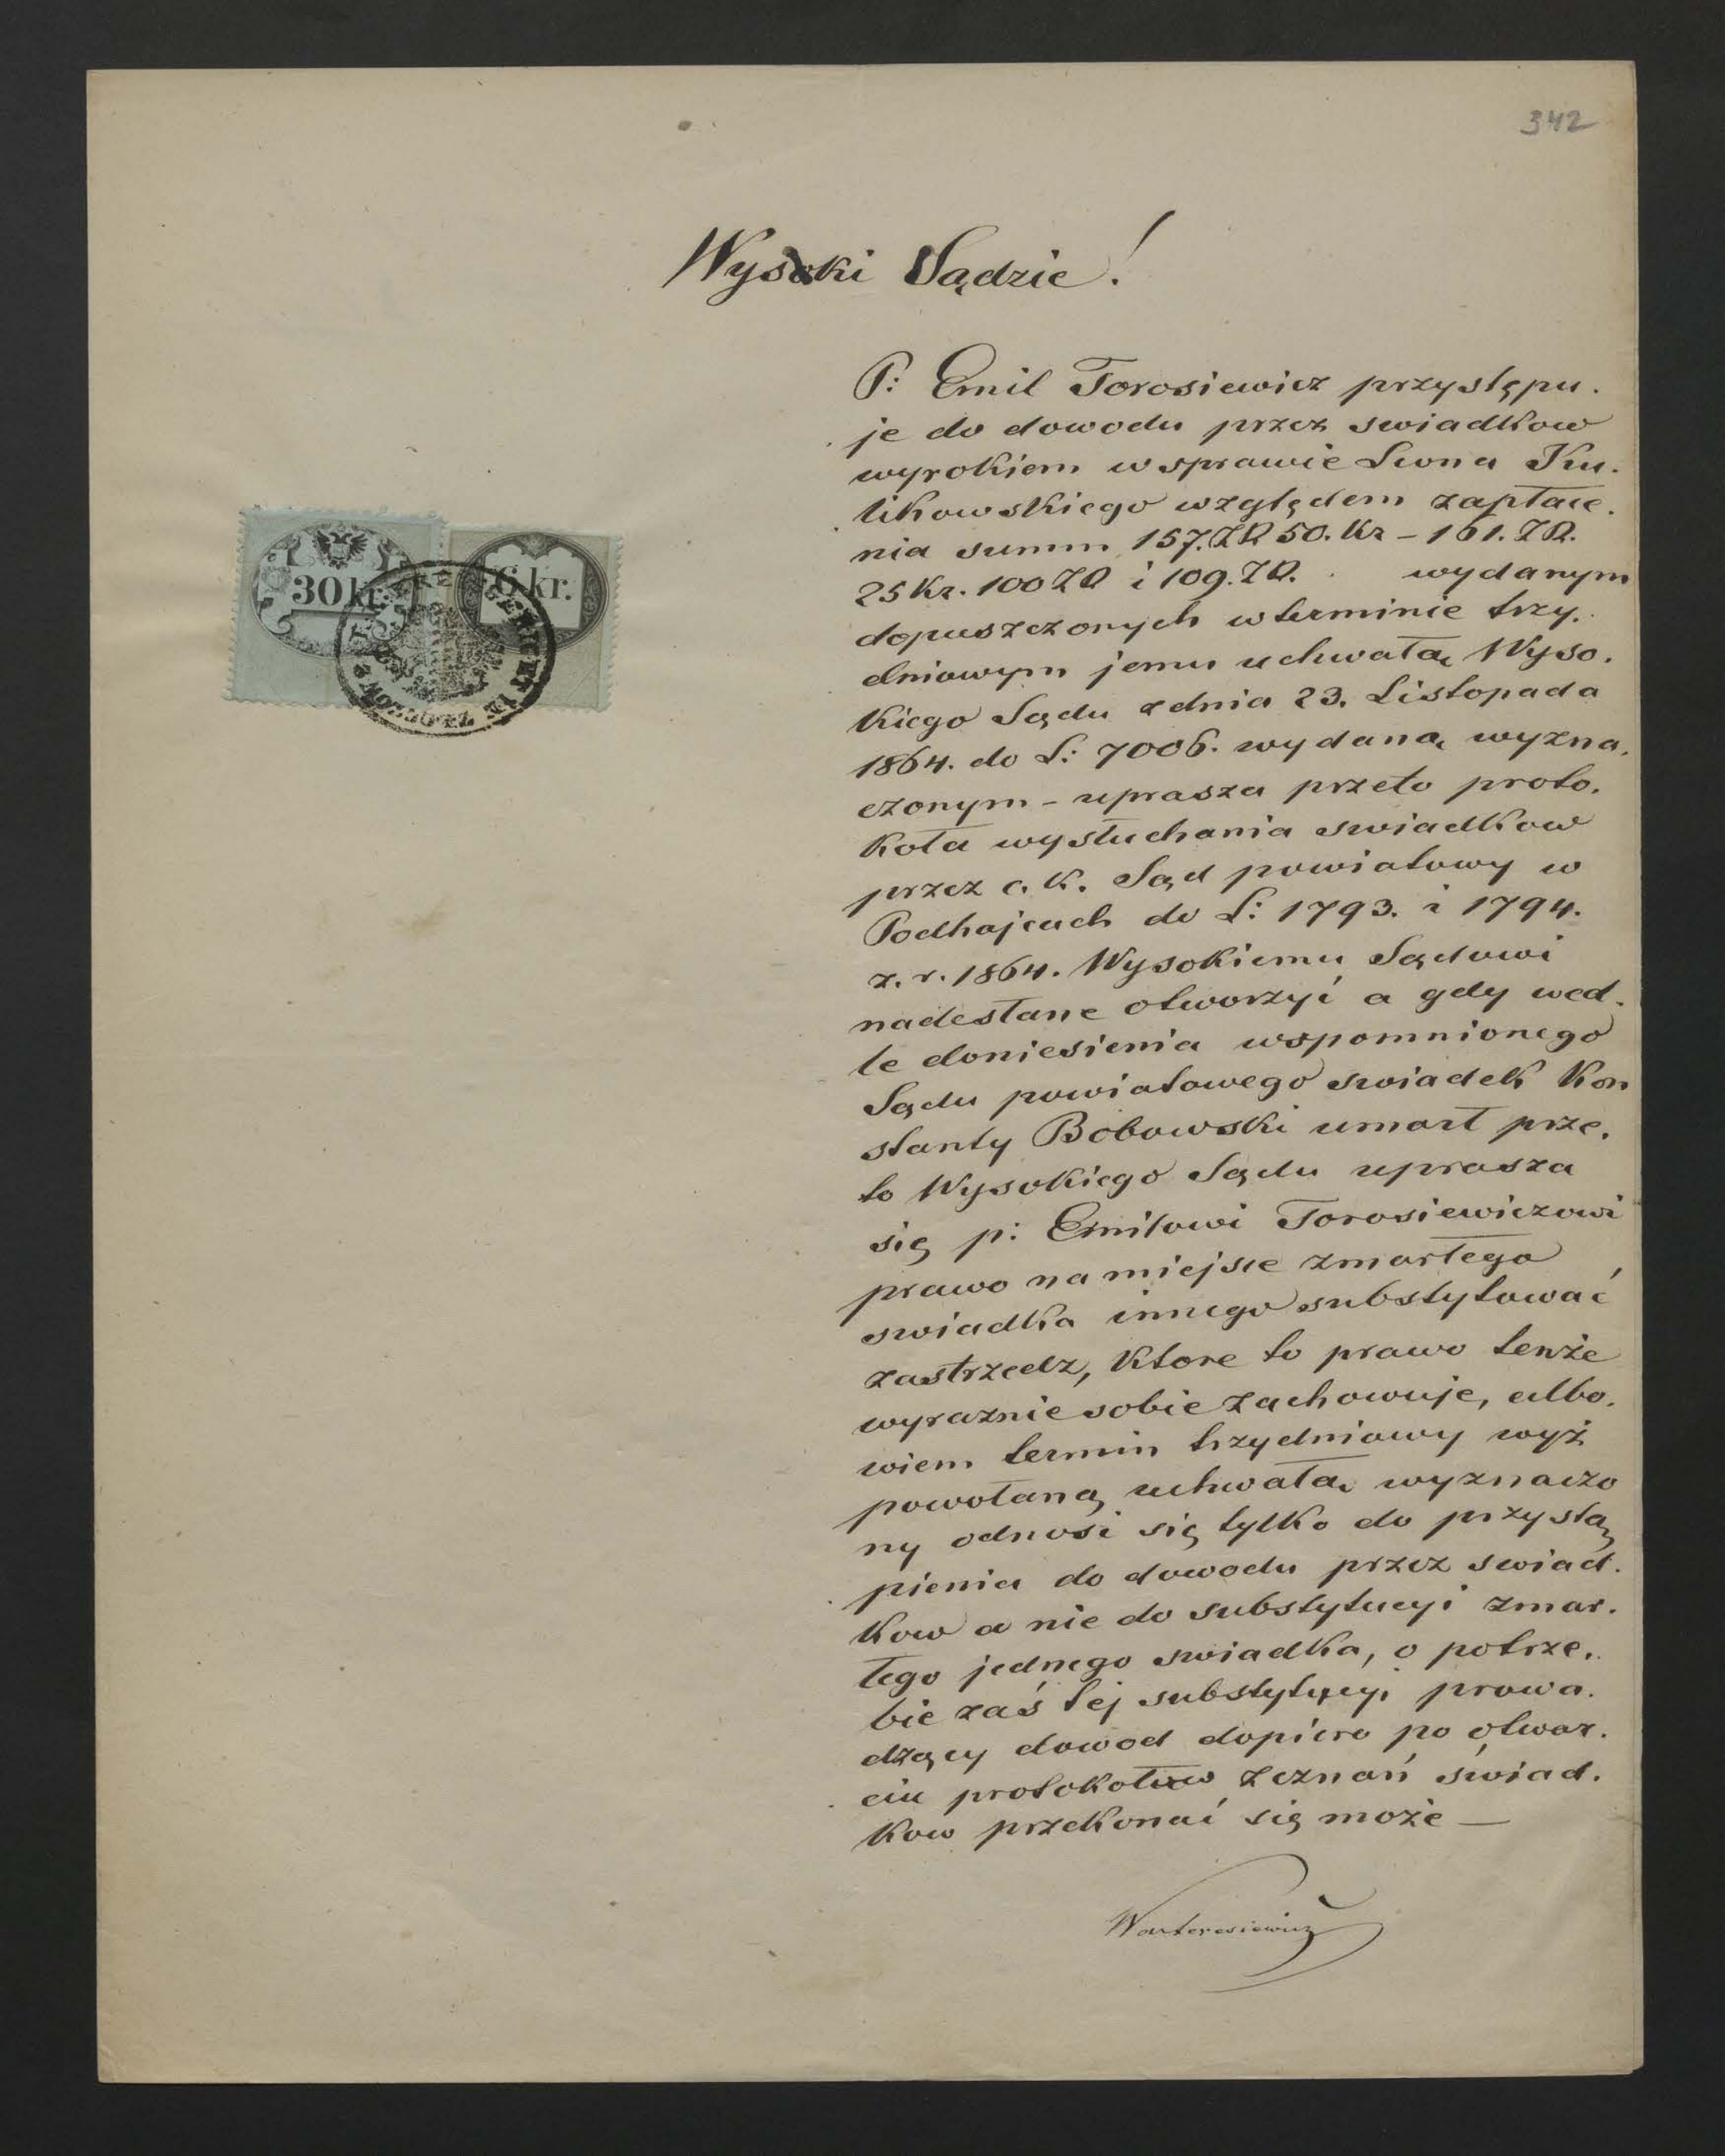 342
Wysoki Sądzie!
P: Emil Torosiewicz przystępu.
je do dowodu przez swiadkow
wyrokiem w sprawie Leona Ku.
likowskiego względem zapłace.
nia summ 157. ZR 50. Kr – 161. ZR.
25 Kr. 100 ZR i 109. ZR. wydanym
dopuszczonych w terminie trzy.
dniowym jemu uchwałą Wyso.
kiego Sądu z dnia 23. Listopada
1864. do L: 7006. wydaną wyzna.
czonym – uprasza przeto proto.
koła wysłuchania swiadkow
przez c. k. Sąd powiatowy w
Podhajcach do L: 1793. i 1794.
z. r. 1864. Wysokiemu Sądowi
nadesłane otworzyć a gdy wed.
le doniesienia wspomnionego
Sądu powiatowego swiadek Kon
stanty Bobowski umarł prze.
to Wysokiego Sądu uprasza
się p: Emilowi Torosiewiczowi
prawo na miejsce zmarłego
swiadka innego substytować
zastrzedz, ktore to prawo tenże
wyraznie sobie zachowuje, albo.
wiem termin trzydniowy wyż
powołaną uchwałą wyznaczo
ny odnosi się tylko do przystą
pienia do dowodu przez swiad.
kow a nie do substytucyi zmar.
łego jednego swiadka, o potrze.
bie zaś tej substytucyi prowa.
dzący dowod dopiero po otwar.
ciu protokołow zeznań świad.
kow przekonać się może —
30 kr.
6 kr.